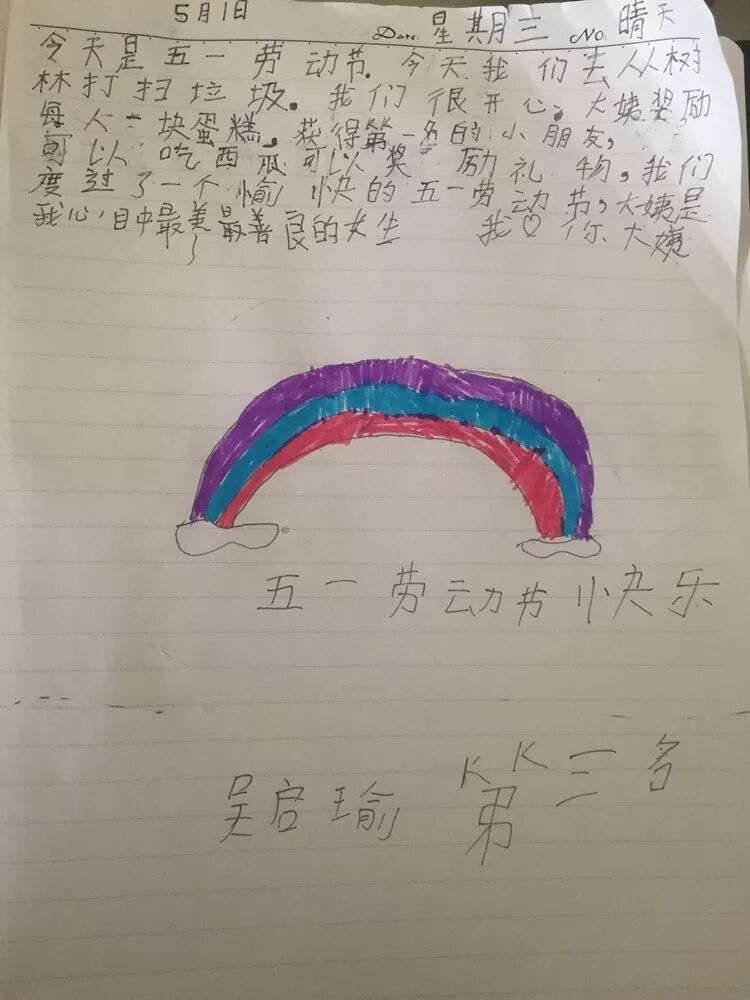 5月1日 Date: 星期三 NO: 晴天
今天是五一劳动节.今天我们去从树
林打扫垃圾.我们很开心。大姨奖励
每人二块蛋糕,获得第一名的小朋友,
可以吃西瓜可以奖励礼物,我们
度过了一个愉快的五一劳动节,大姨是
我心目中最美最善良的女生 我♡你大姨
五一劳动节快乐
吴启瑜 第三名